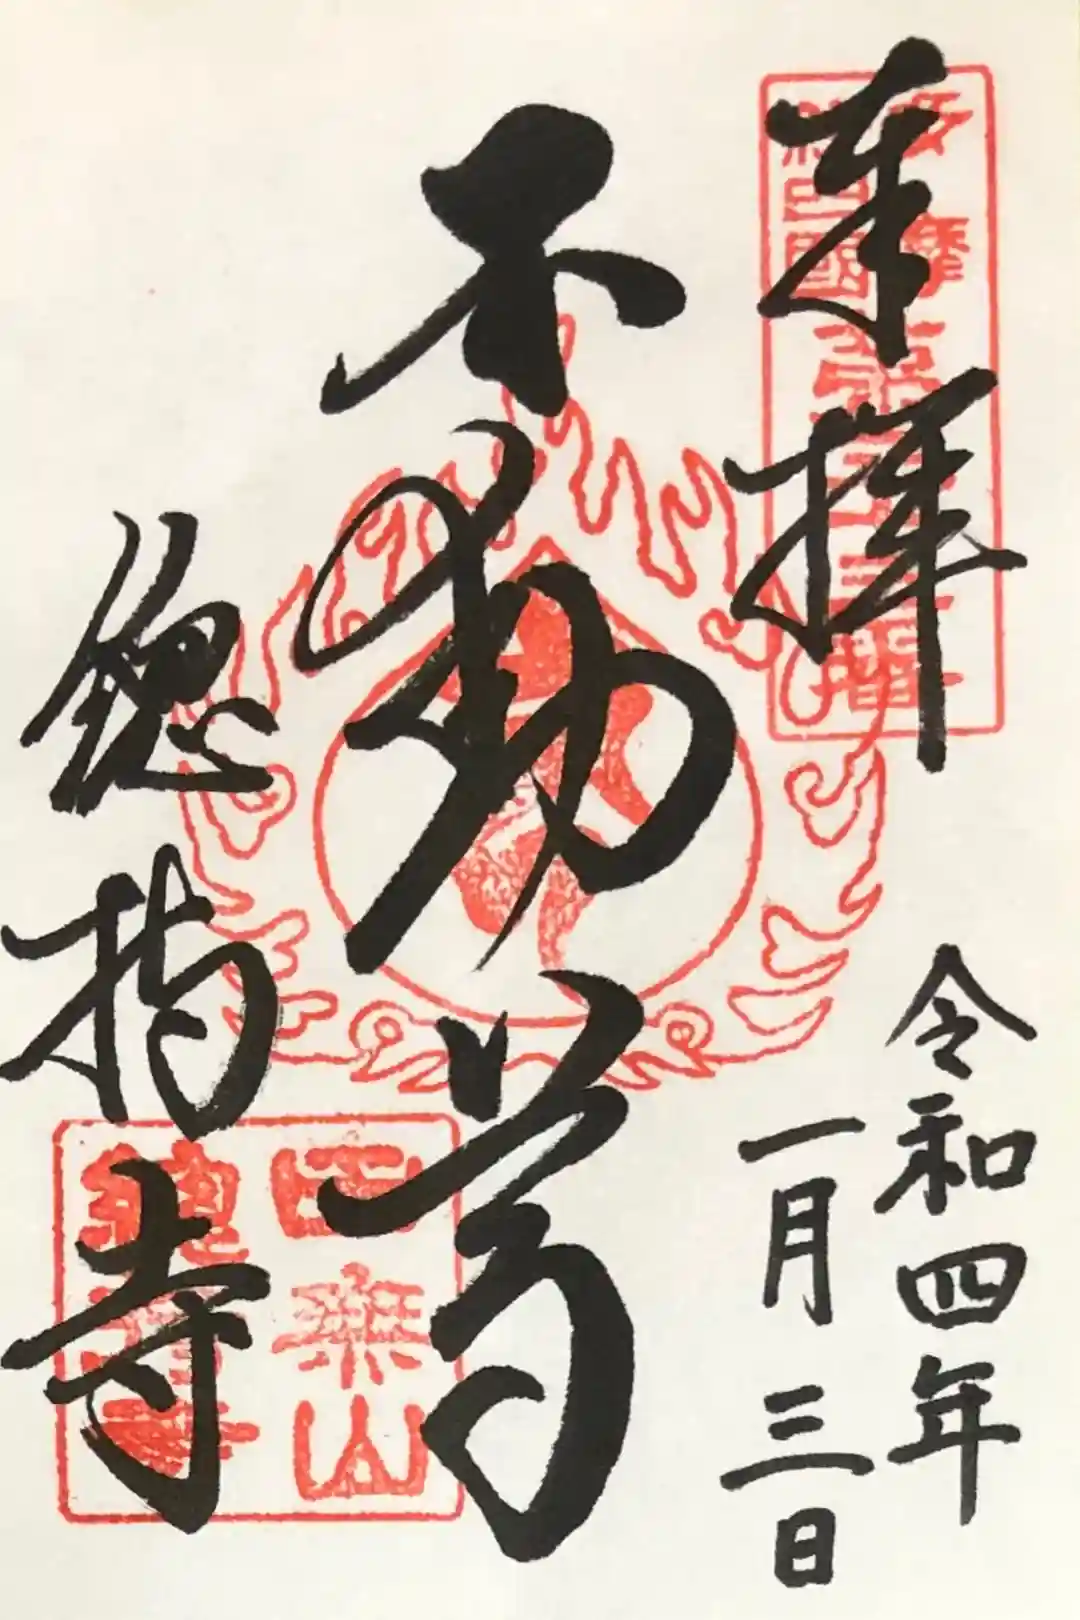 奉拝
令和四年
一月三日
不動尊
總持寺
田無山
總持寺